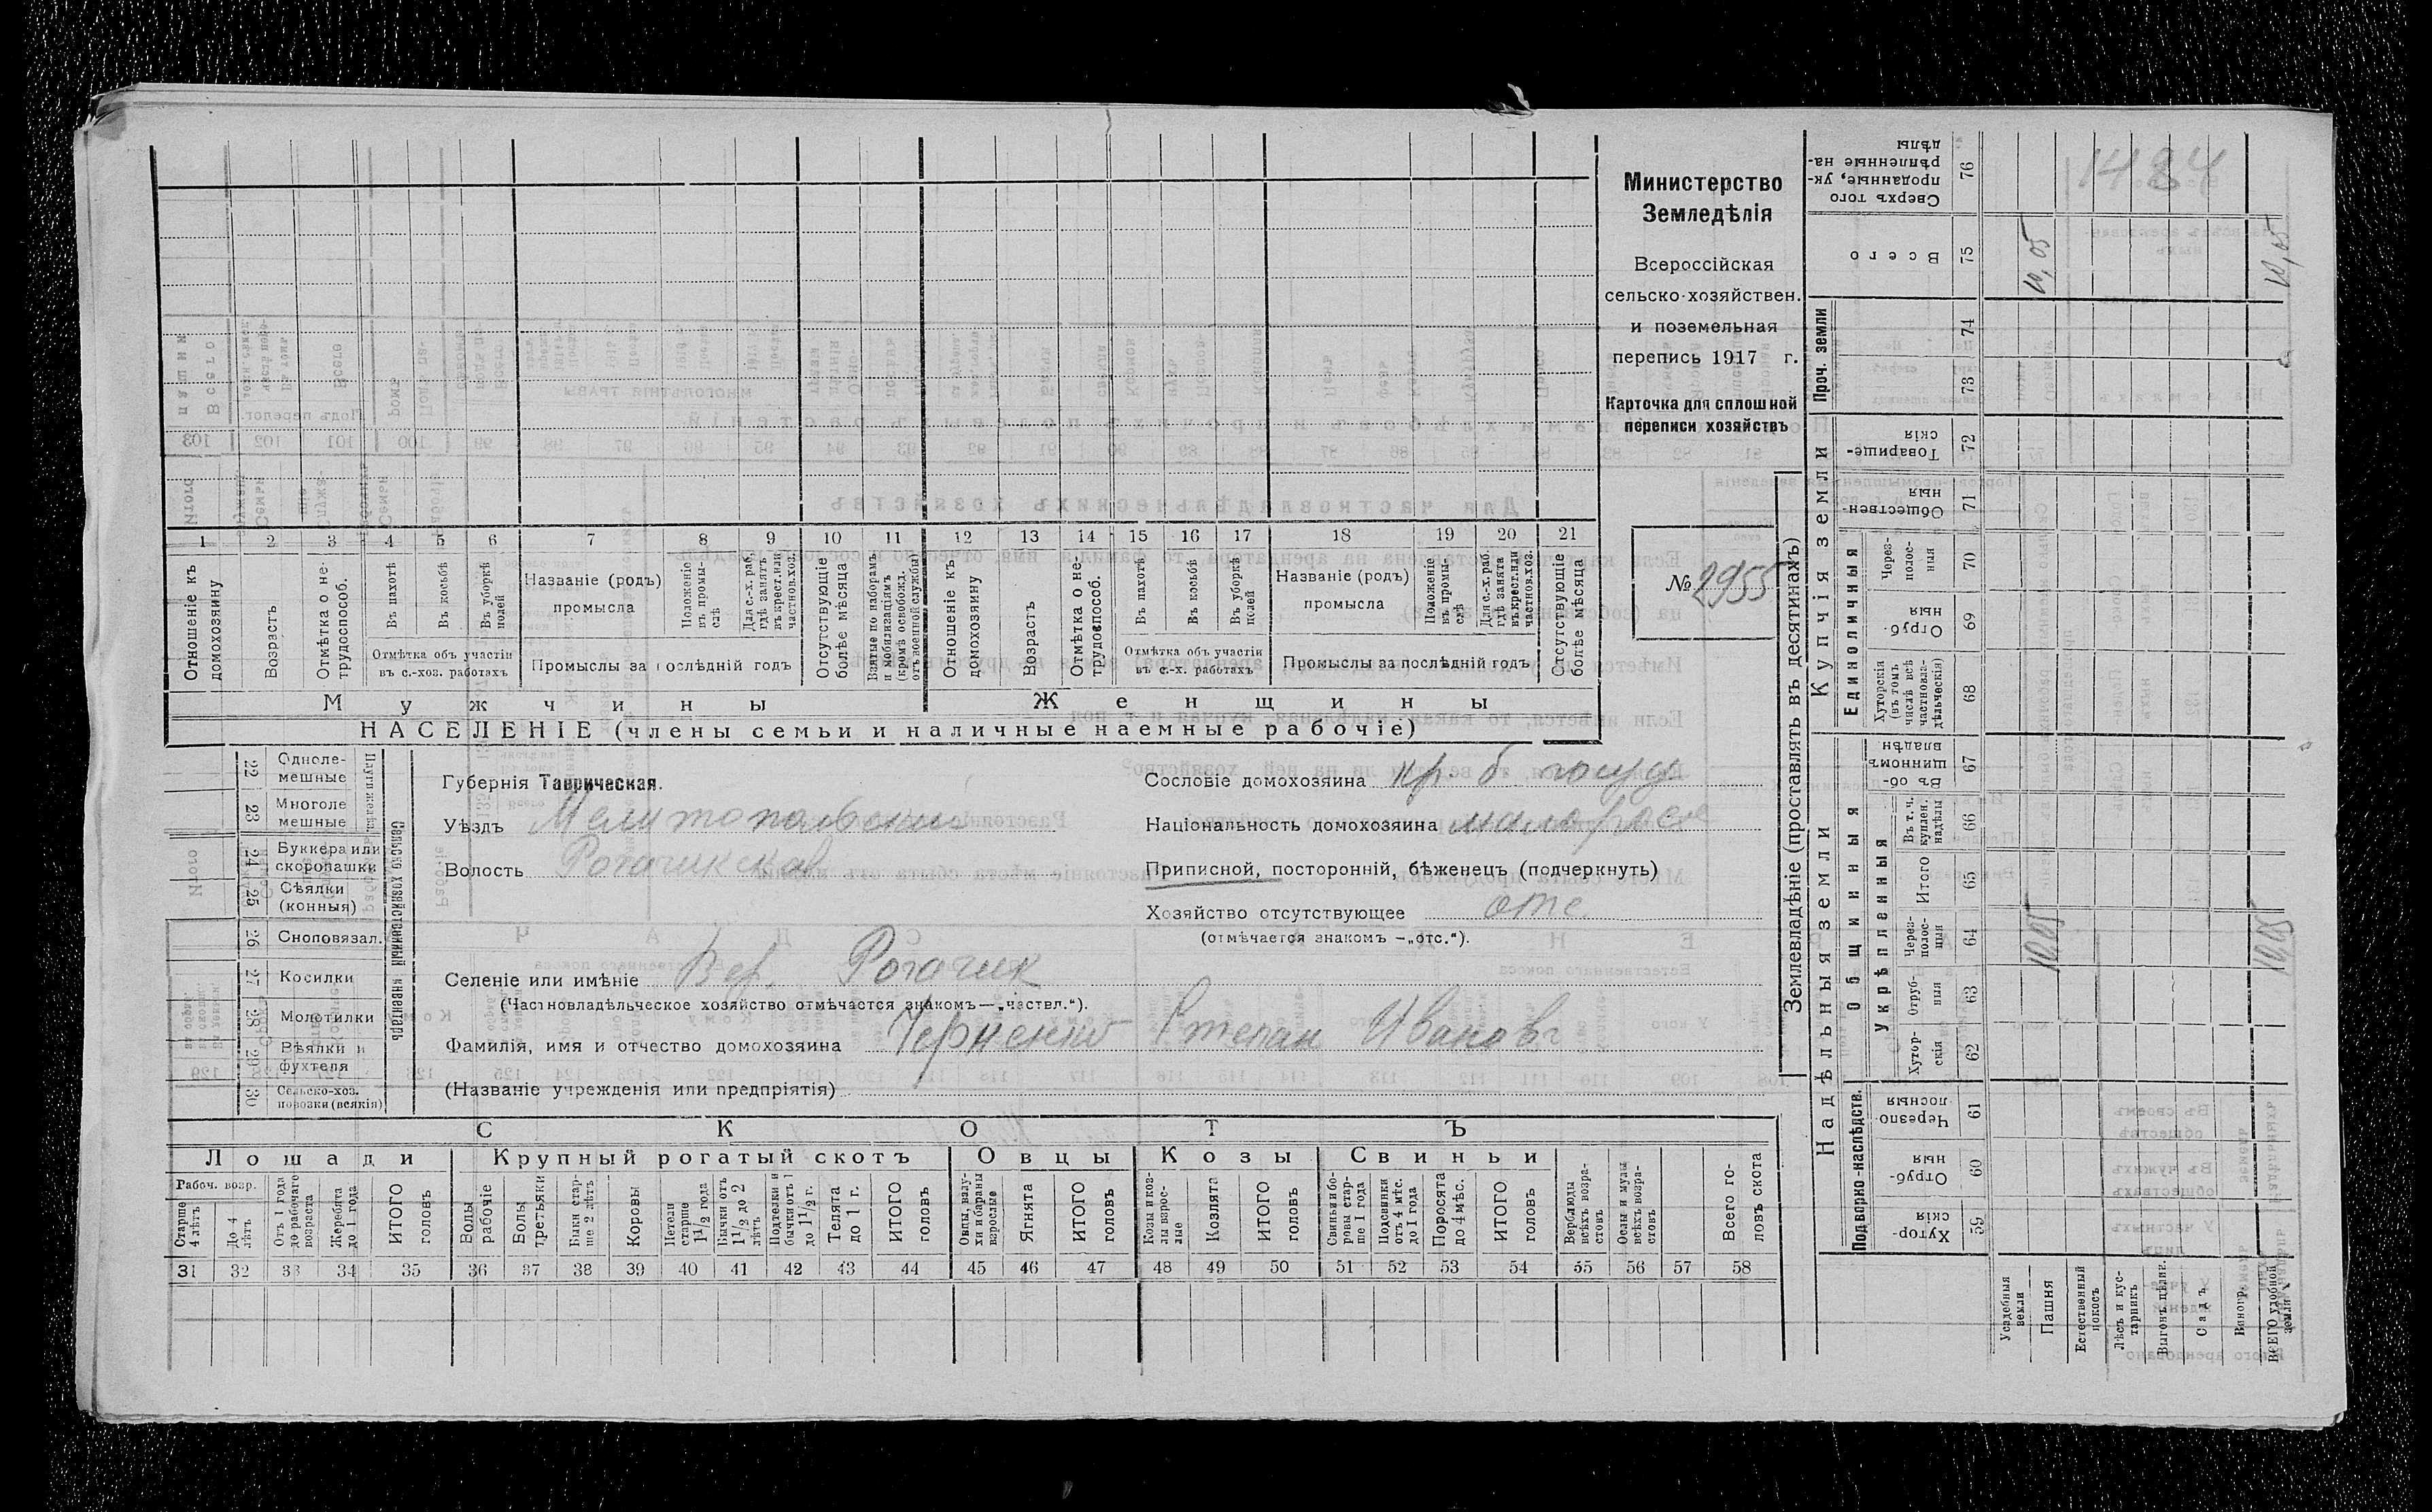 Министерство
Земледѣлія
Всероссійская
сельско-хозяйствен.
и поземельная
перепись 1917 г.
Карточка для сплошной
переписи хозяйствъ
№ 2955
1434
1 2 3 4 5 6 7 8 9 10 11 12 13 14 15 16 17 18 19 20 21
Отношеніе къ домохозяину
Возрастъ
Отмѣтка о нетрудоспособ.
Въ пахотѣ
Въ косьбѣ
Въ уборкѣ полей
Отмѣтка объ участіи
въ с.-хоз. работахъ
Названіе (родъ)
промысла
Положеніе въ промыслѣ
Для с.-х. раб. гдѣ занятъ въ крест. или частнов. хоз.
Промыслы за послѣдній годъ
Отсутствующіе болѣе мѣсяца
Взятые по наборамъ и мобилизаціямъ (кромѣ освобожд. отъ военной службы)
Отношеніе къ домохозяину
Возрастъ
Отмѣтка о нетрудоспособ.
Въ пахотѣ
Въ косьбѣ
Въ уборкѣ полей
Отмѣтка объ участіи
въ с.-х. работахъ
Названіе (родъ)
промысла
Положеніе въ промыслѣ
Для с.-х. раб. гдѣ занята въ крест. или частнов. хоз.
Промыслы за послѣдній годъ
Отсутствующіе болѣе мѣсяца
Мужчины
Женщины
НАСЕЛЕНІЕ (члены семьи и наличные наемные рабочіе)
22 Однолемешные
23 Многолемешные
Плуги желѣзн.
24 Буккера или скоропашки
25 Сѣялки (конныя)
26 Сноповязал.
27 Косилки
28 Молотилки
29 Вѣялки и фухтеля
30 Сельско-хоз. повозки (всякія)
Сельско хозяйственный инвентарь
Губернія Таврическая.
Уѣздъ Мелитопольский
Волость Рогачикская
Селеніе или имѣніе Вер. Рогачик
(Частновладѣльческое хозяйство отмѣчается знакомъ—„частвл.“).
Фамилія, имя и отчество домохозяина Черненко Степан Иванов
(Названіе учрежденія или предпріятія)
Сословіе домохозяина кр. б. госуд
Національность домохозяина малорос
Приписной, посторонній, бѣженецъ (подчеркнуть)
Хозяйство отсутствующее отс.
(отмѣчается знакомъ —„отс.“).
СКОТЪ
Лошади
Рабоч. возр.
Старше 4 лѣтъ
До 4 лѣтъ
Отъ 1 года до рабочаго возраста
Жеребята до 1 года
ИТОГО головъ
Крупный рогатый скотъ
Волы рабочіе
Волы третьяки
Быки старше 2 лѣтъ
Коровы
Нетели старше 1 1/2 года
Бычки отъ 1 1/2 до 2 лѣтъ
Подтелки и бычки отъ 1 до 1 1/2 г.
Телята до 1 г.
ИТОГО головъ
Овцы
Овцы, валухи и бараны взрослые
Ягнята
ИТОГО головъ
Козы
Козы и козлы взрослые
Козлята
ИТОГО головъ
Свиньи
Свиньи и боровы старше 1 года
Подсвинки отъ 4 мѣс. до 1 года
Поросята до 4 мѣс.
ИТОГО головъ
Верблюды всѣхъ возрастовъ
Ослы и мулы всѣхъ возрастовъ
Всего головъ скота
31 32 33 34 35 36 37 38 39 40 41 42 43 44 45 46 47 48 49 50 51 52 53 54 55 56 57 58
Землевладѣніе (проставлять въ десятинахъ)
Надѣльныя земли
Купчія земли
Проч. земли
Подворно-наслѣдств.
Общинныя
Укрѣпленныя
Единоличныя
59 Хуторскія
60 Отрубныя
61 Черезполосныя
62 Хуторскія
63 Отрубныя
64 Черезполосныя
65 Итого
66 Въ т. ч. куплен. надѣлы
67 Въ общинномъ владѣн.
68 Хуторскія (въ томъ числѣ всѣ частновладѣльческія)
69 Отрубныя
70 Черезполосныя
71 Общественныя
72 Товарищескія
73
74
75 Всего
76 Сверхъ того проданные, укрѣпленные надѣлы
Усадебныя земли
Пашня
Естественный покосъ
Лѣсъ и кустарникъ
Выгонъ, цѣлик.
Садъ
Виногр.
ВСЕГО удобной земли
10,05
10,05
10,05
10,05